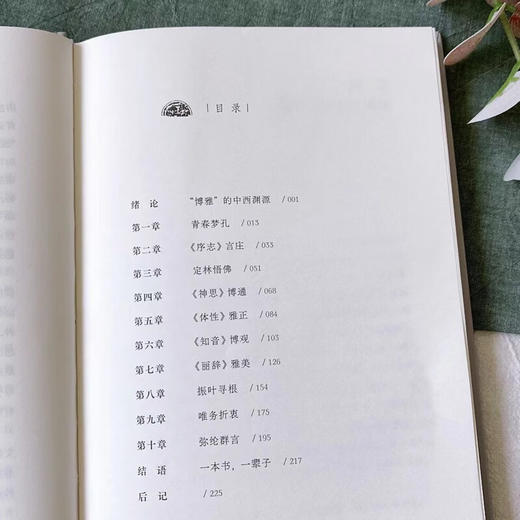 | 目录 |
绪 论 “博雅”的中西渊源 / 001
第一章 青春梦孔 / 013
第二章 《序志》言庄 / 033
第三章 定林悟佛 / 051
第四章 《神思》博通 / 068
第五章 《体性》雅正 / 084
第六章 《知音》博观 / 103
第七章 《丽辞》雅美 / 126
第八章 振叶寻根 / 154
第九章 唯务折衷 / 175
第十章 弥纶群言 / 195
结 语 一本书，一辈子 / 217
后 记 / 225